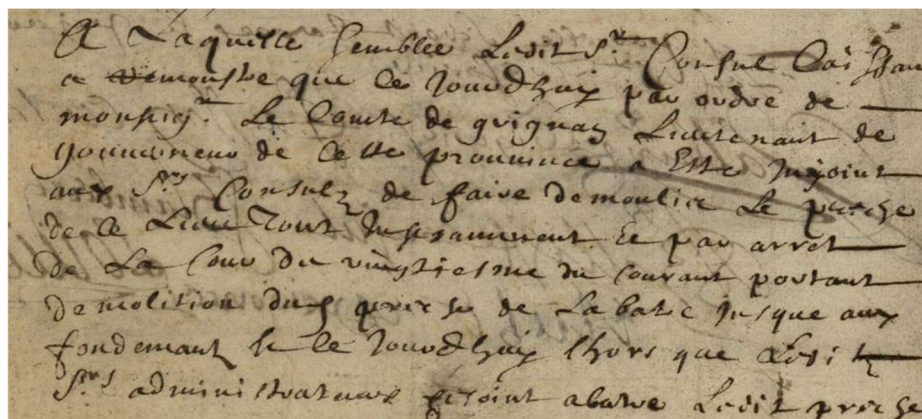 A Laquelle semblee Ledit Sr Consul
a demonstre que ce Jourdhuy par ordre de
monsigr. Le Comte de grignan Lieutenant de
gouverneur de Cette prouuince a Este Injoint
aux Srs Consulz de faire demoulir Le presche
de ce Lieu Tout Insesamment Et par arret
de La Cour du vingtiesme du courant portant
demolition dud presche de Labatre Jusque aux
fondemant Et ce Jourdhuy Lhors que Lesitz
Srs administrateurs abatre Ledit presche